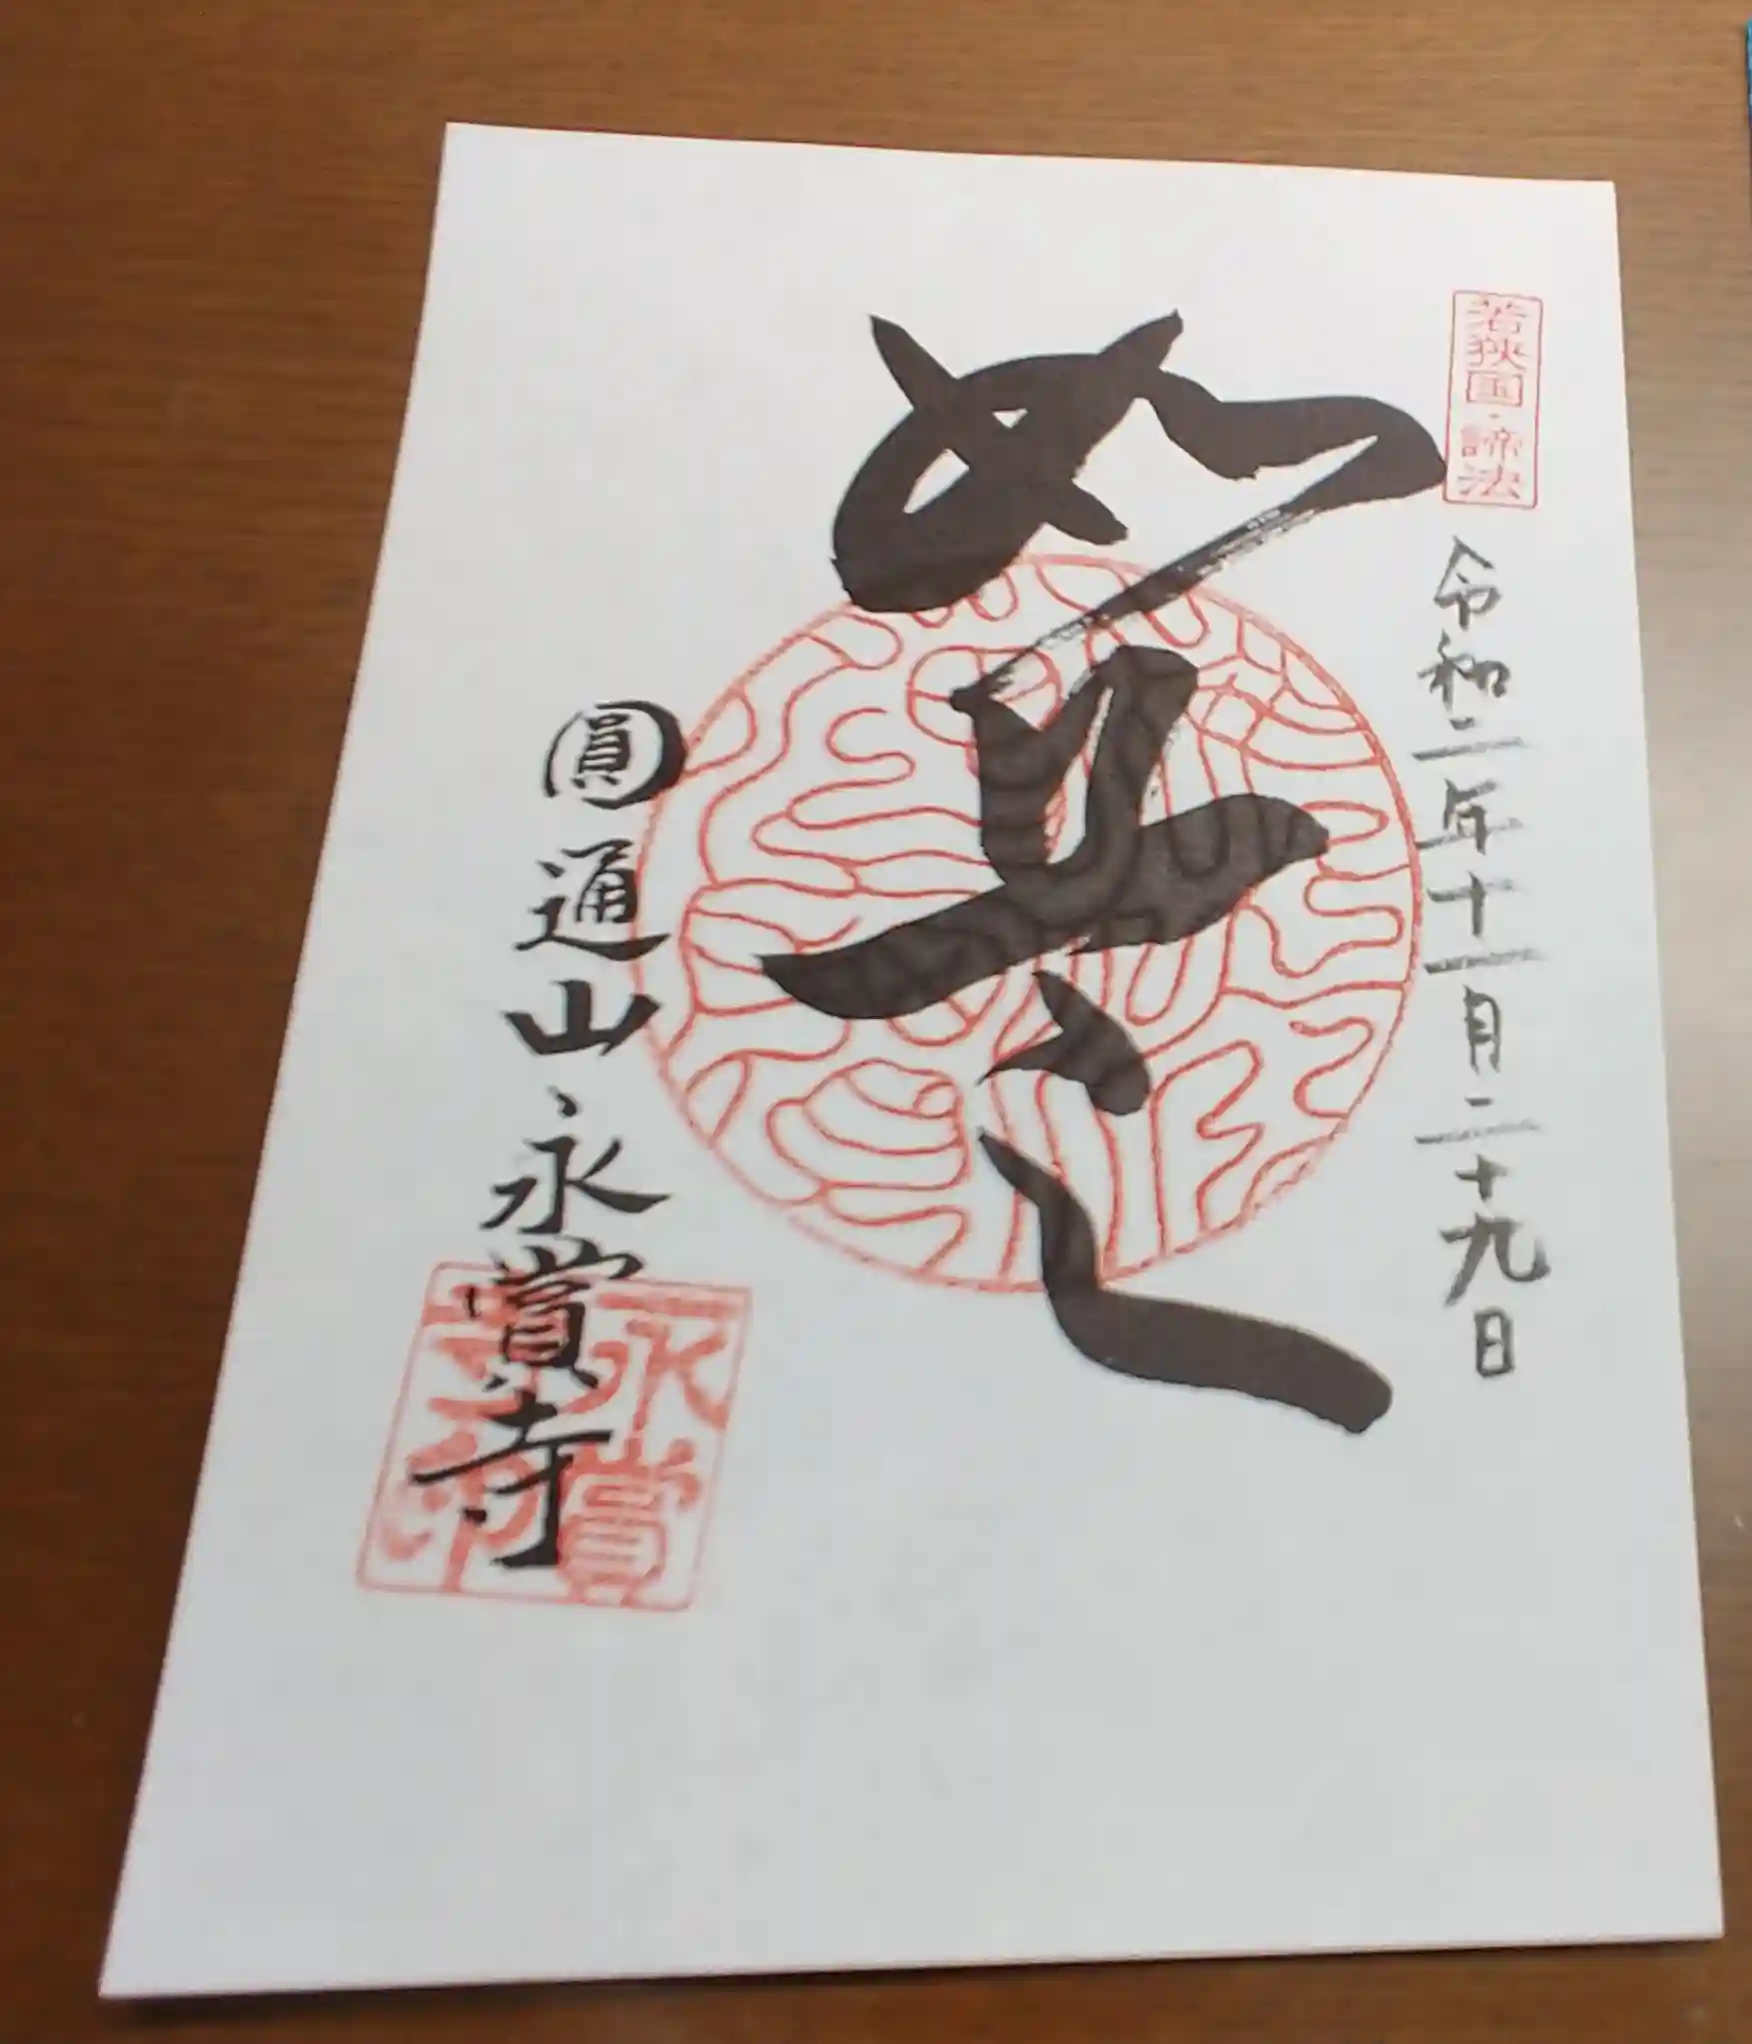 若狭国・諦法
令和二年十一月二十九日
圓通山永賞寺
永賞
寺印